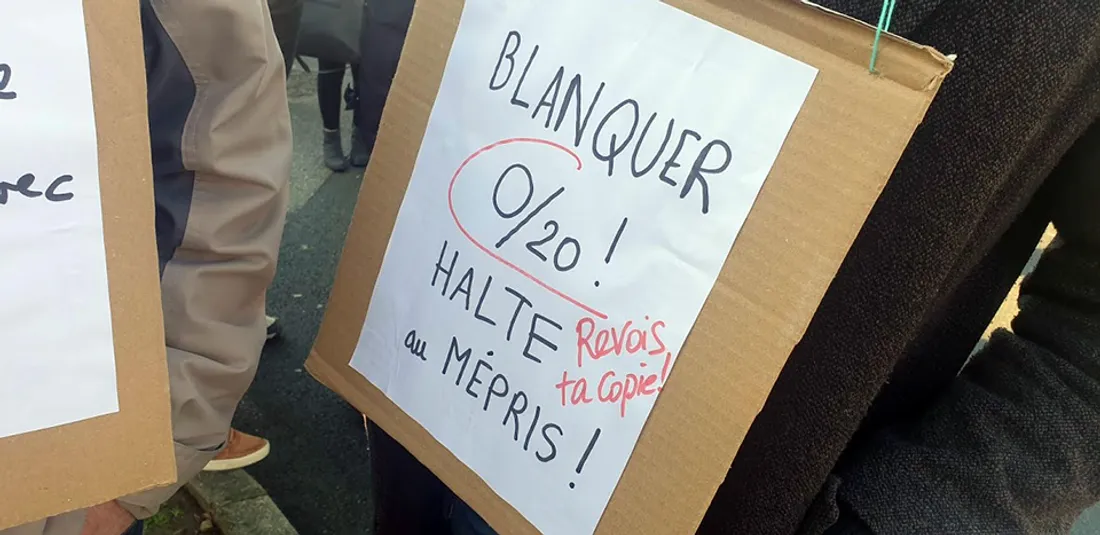 BLANQUER
0/20 !
HALTE
au MÉPRIS !
Revois
ta copie!